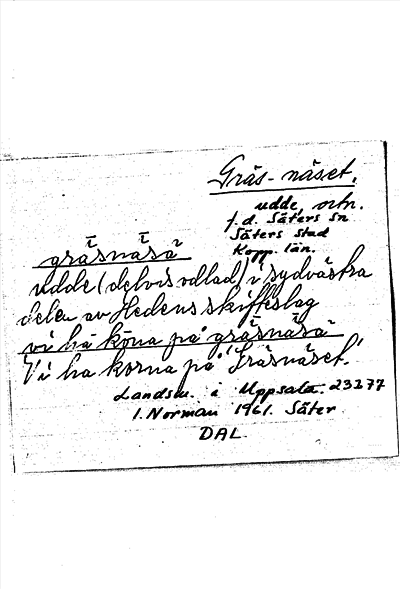 Gräs-näset.
udde, ortn.
f.d. Säters Sn
Säters Stad
Kopp. län.
grǟsnǟsà
udde (delvis odlad) i sydvästra
delen av Hedens skifteslag
vi hà kōna på grǟsnǟsà
'Vi ha korna på Gräsnäset.'
Landsm. i Uppsala. 23277
I. Norman 1961. Säter
DAL